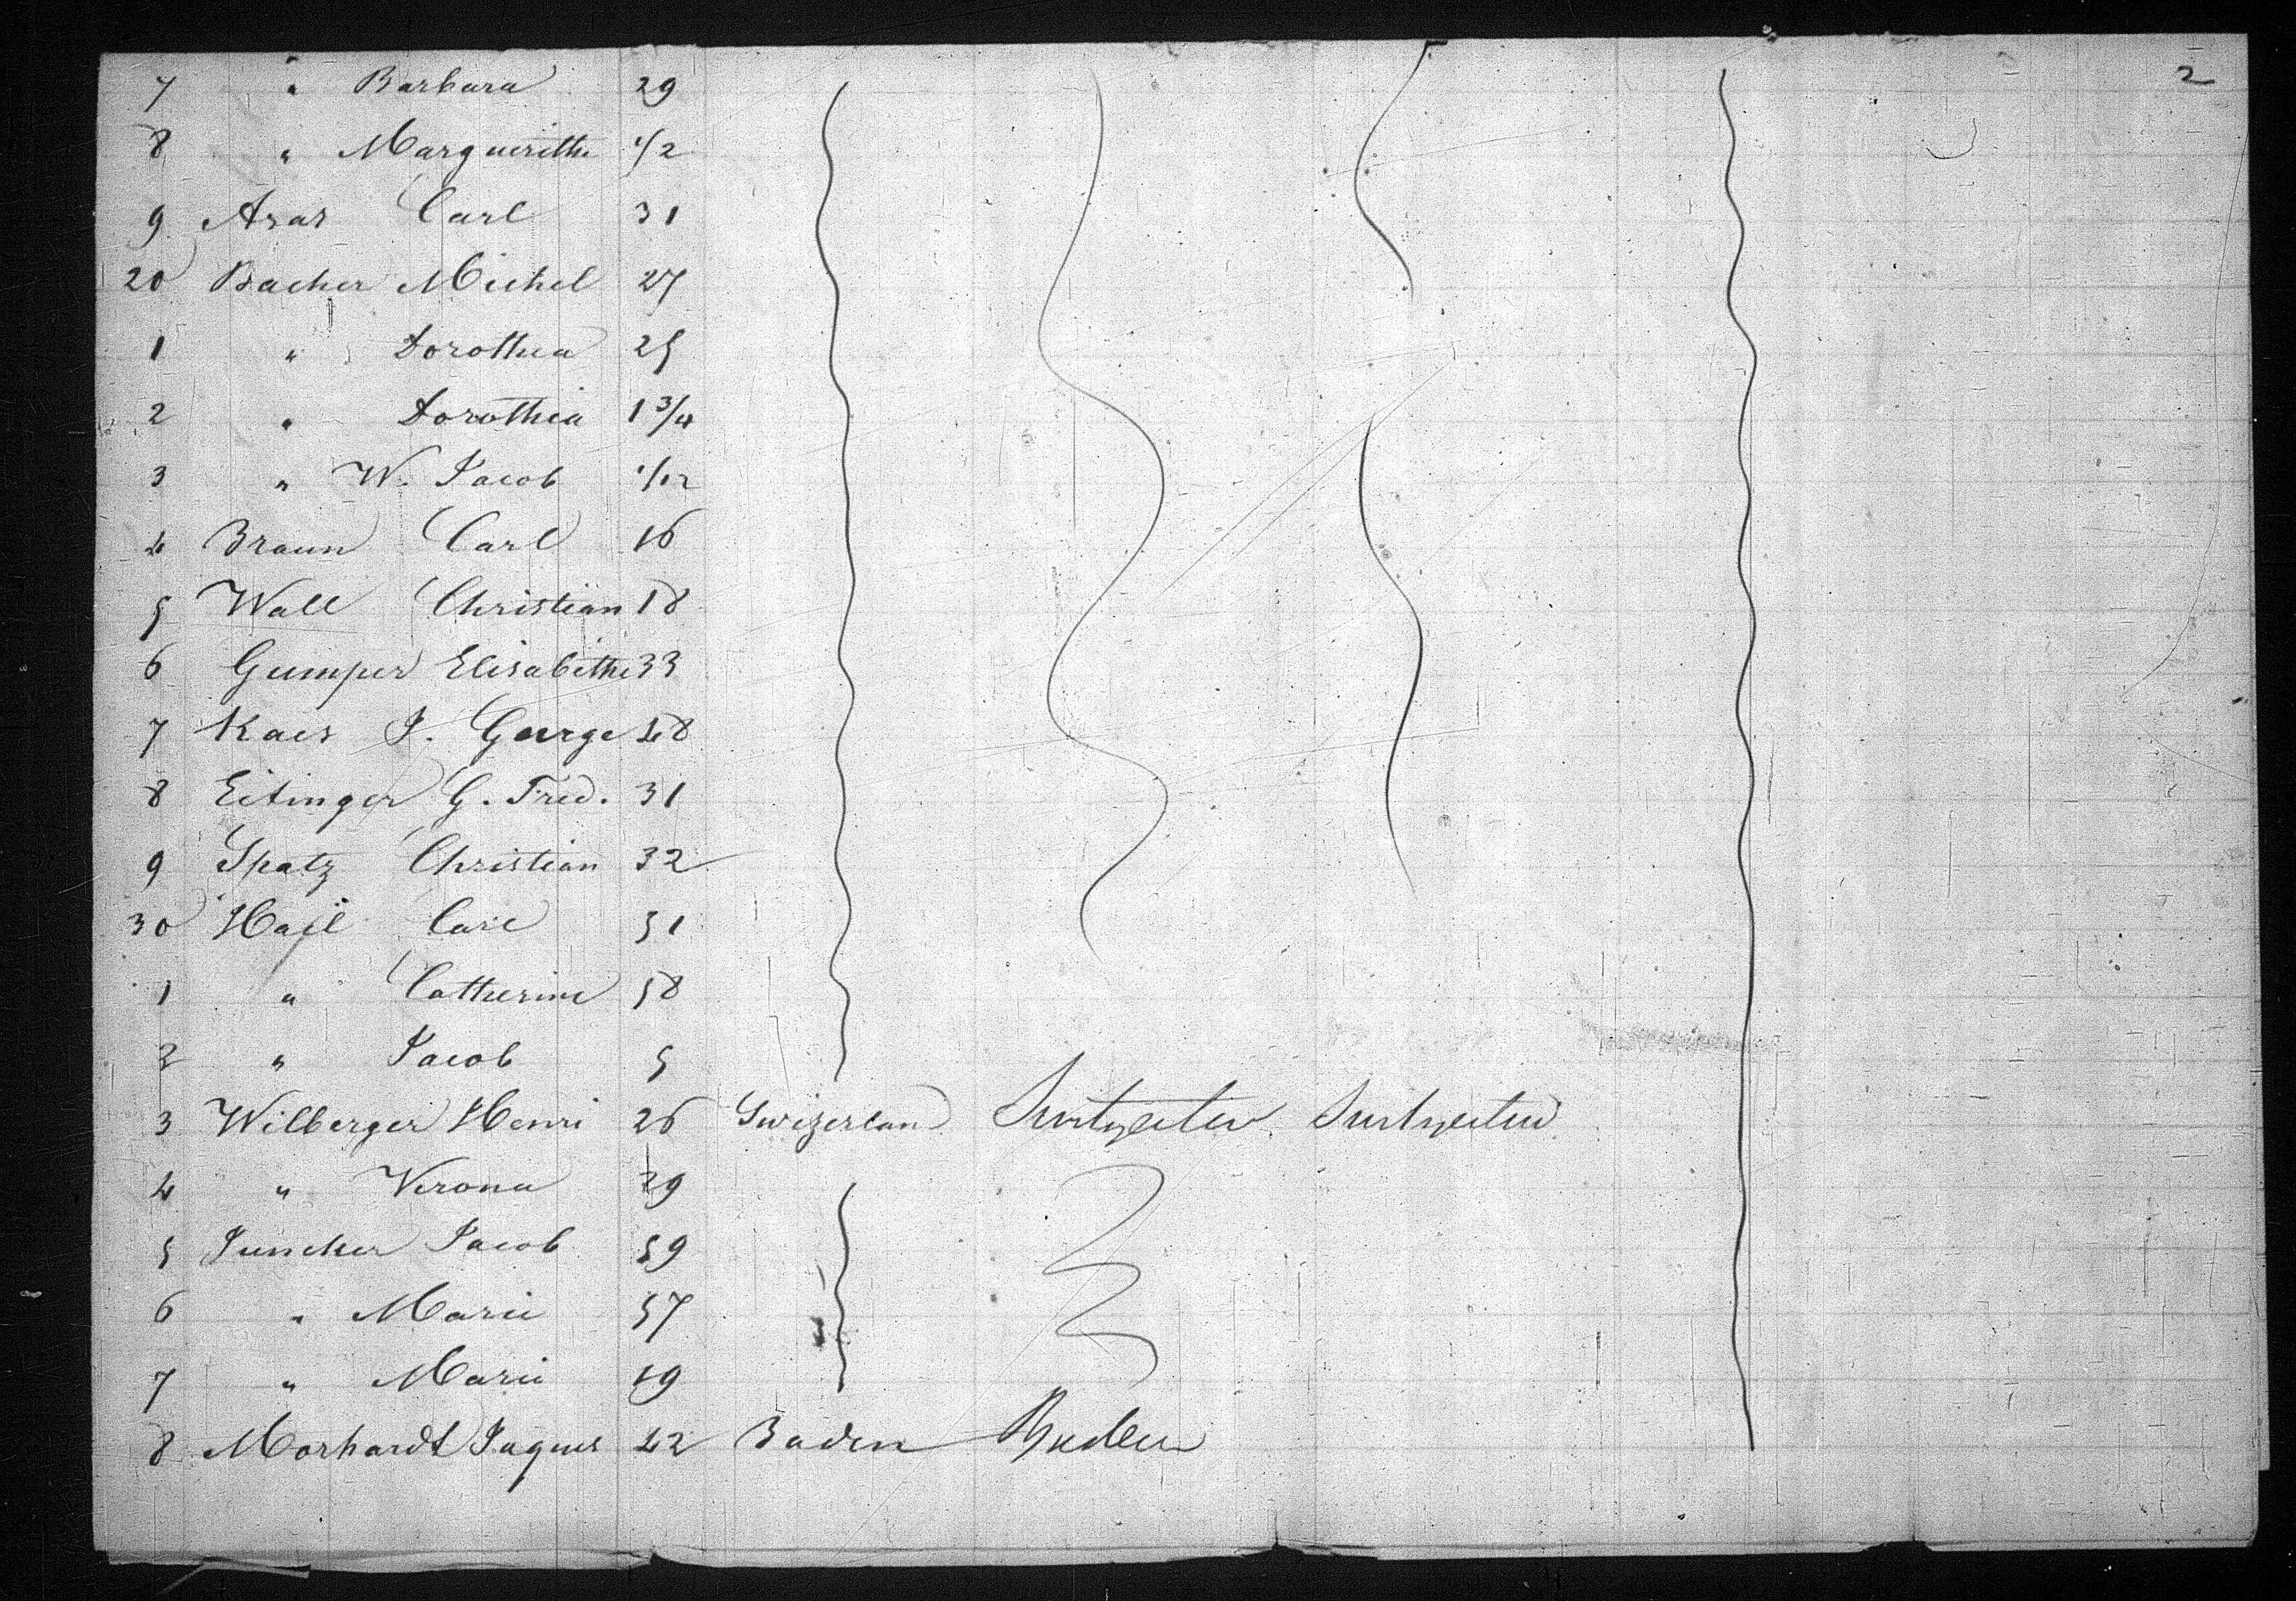 2
7 " Barbara 29
8 " Marguerithe 1/2
9 Asas Carl 31
20 Bacher Michel 27
1 " Dorothea 25
2 " Dorothea 1 3/4
3 " W. Jacob 1/12
4 Braun Carl 16
5 Wall Christian 18
6 Gumper Elisabethe 33
7 Kaes J. George 48
8 Eitinger G. Fred. 31
9 Spatz Christian 32
30 Hail Carl 51
1 " Catherine 58
2 " Jacob 5
3 Wilberger Henri 26 Swizerland
4 " Verona 29
5 Juncker Jacob 59
6 " Marie 57
7 " Marie 19
8 Morhardt Jaques 42 Baden Baden